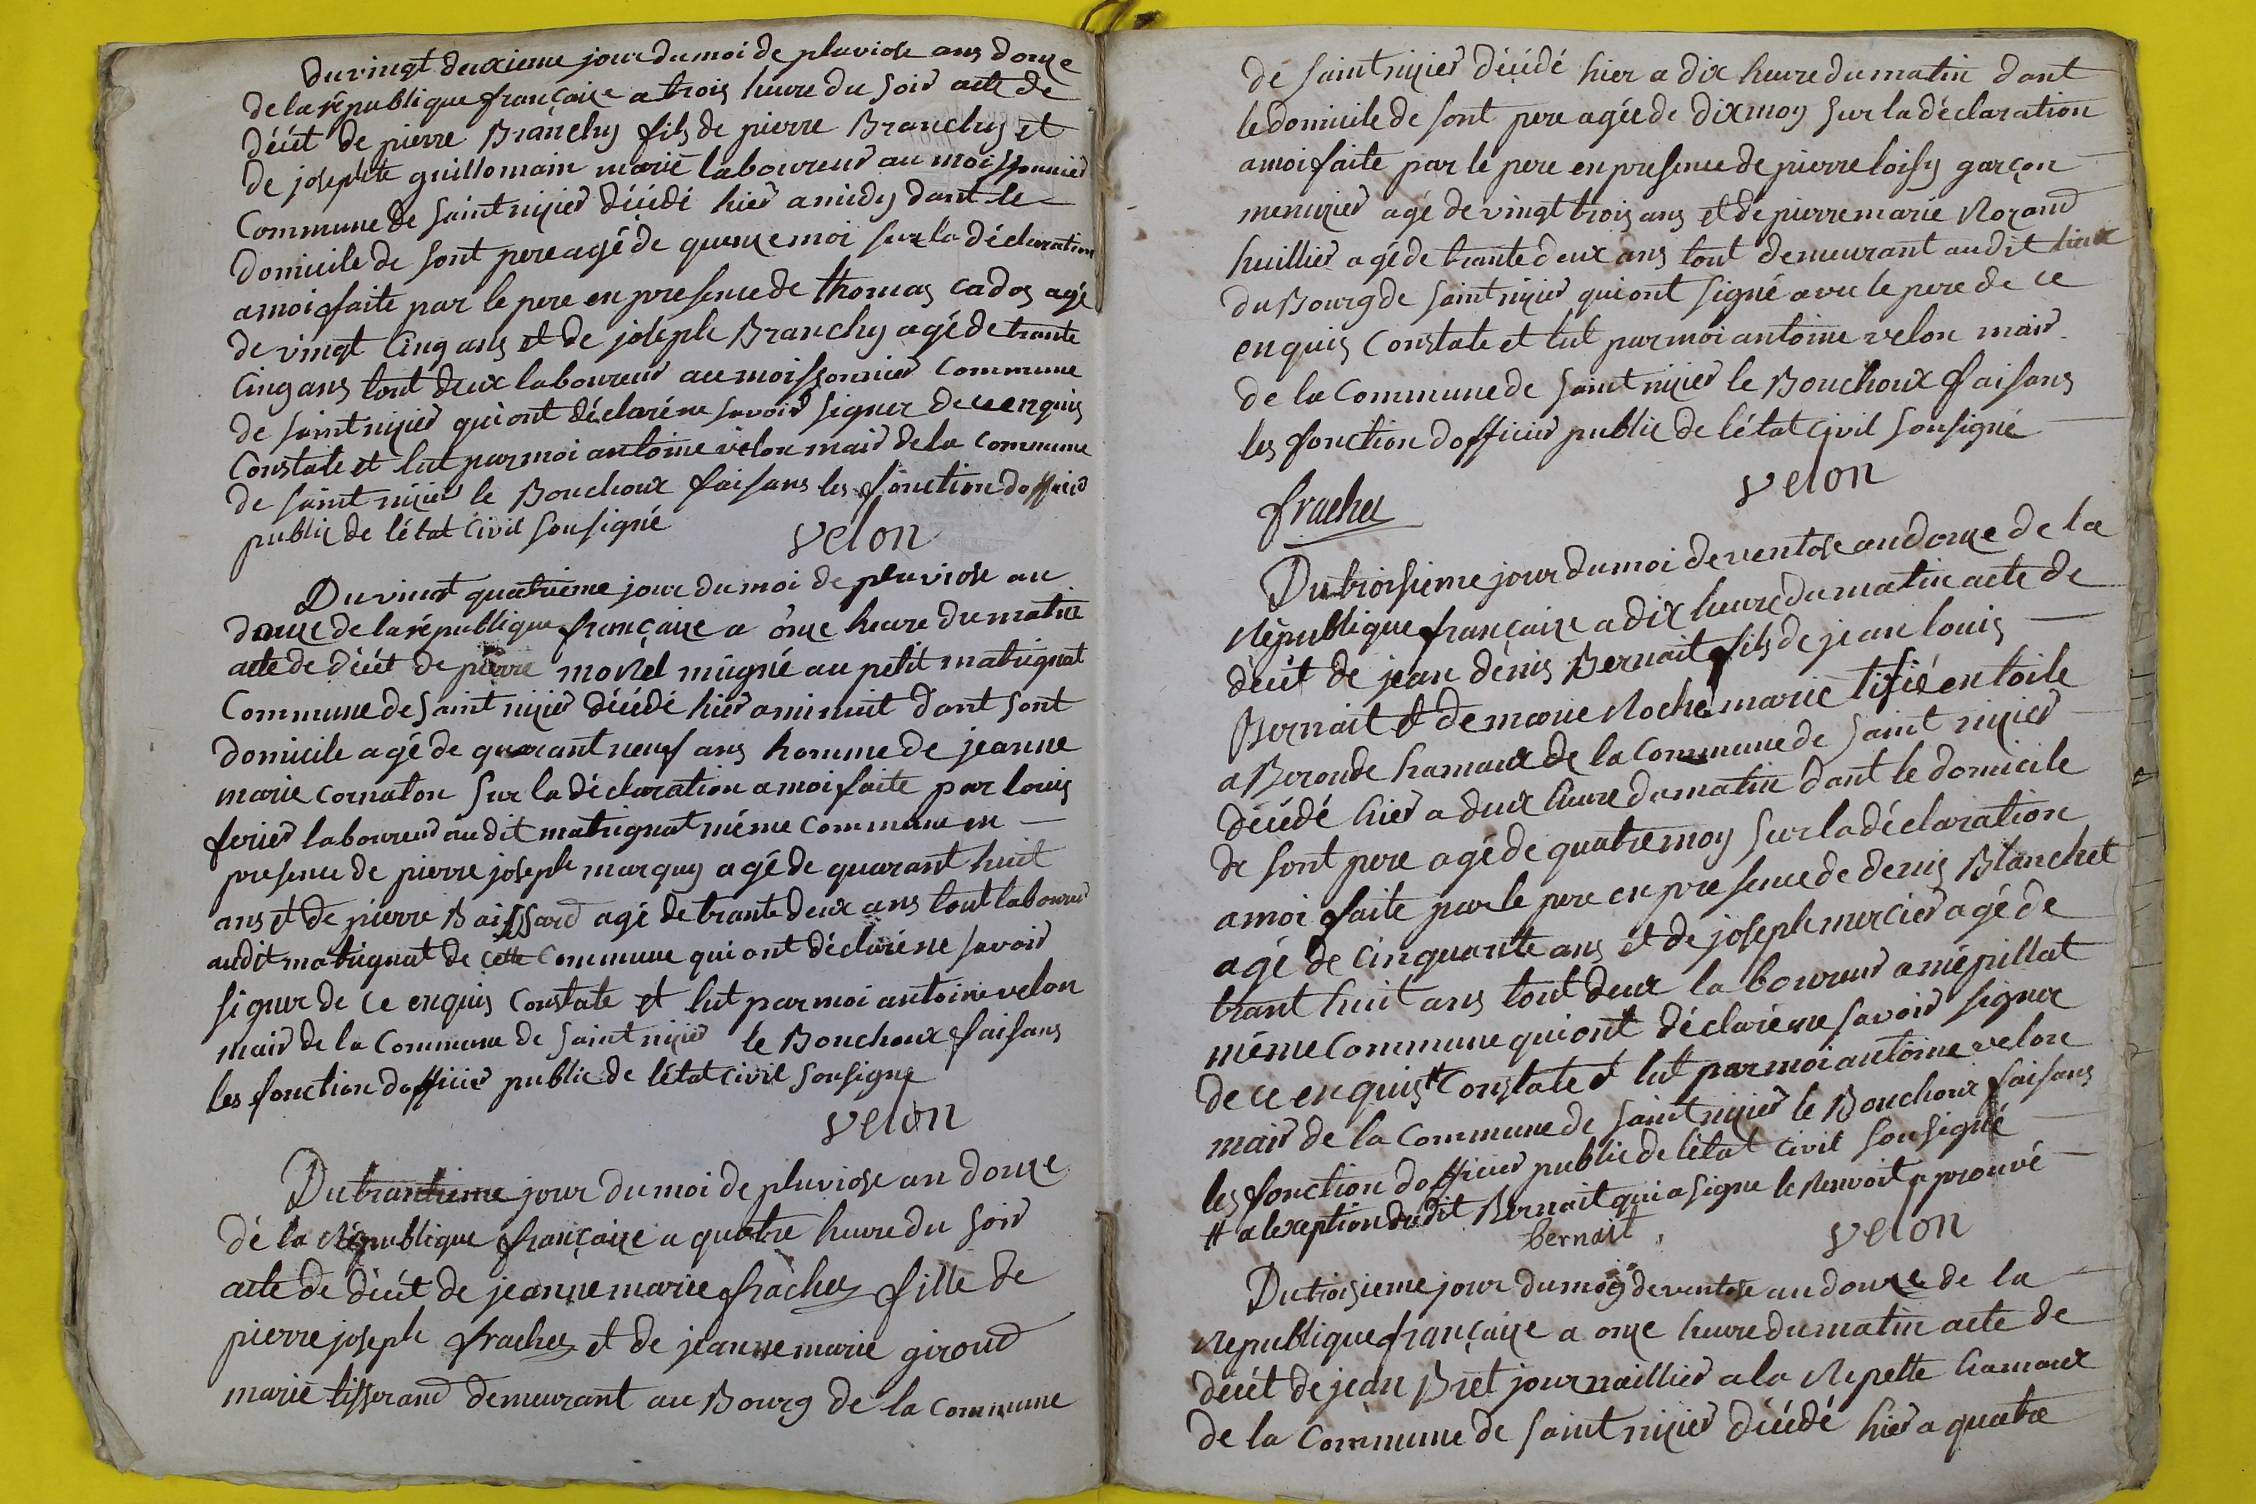 Du vingt deuxieme jour du moi de pluviose ans douze
de la république françaize a trois heure du soir acte de
décét de pierre Branchy fils de pierre Branchy et
de josephte guillomain marié laboureur au moissonnier
Commune de saint nizier décédé hier a midy dant le
domicile de sont pere agé de quenze moi sur la déclaration
a moi faite par le pere en presence de thomas cados agé
de vingt cinq ans et de joseph Branchy agé de trante
cinq ans tout deux laboureur au moissonnier Commune
de saint nizier qui ont déclaré ne savoir signer de ce enquis
Constate et lut par moi antoine velon mair de la Commune
de saint nizier le Bouchoux faisans les fonction dofficier
public de létat Civil sousigné
velon
Du vingt quatrième jour du moi de pluviose an
douze de la république françaize a onze heure du matin
acte de décét de pierre morel mugné au petit matrignat
Commune de saint nizier décédé hier a minuit dant sont
domicile agé de quarant neuf ans homme de jeanne
marie cornaton sur la déclaration a moi faite par louis
ferier laboureur audit matrignat même Commune en
presence de pierre joseph marquy agé de quarant huit
ans et de pierre Baissard agé de trante deux ans tout laboureur
audit matrignat de cette Commune qui ont déclaré ne savoir
signer de ce enquis Constate et lut par moi antoine velon
mair de la Commune de saint nizier le Bouchoux faisans
les fonction dofficier public de létat civil sousigné
velon
Du trantieme jour du moi de pluviose an douze
dé la République françaize a quatre heure du soir
acte de décét de jeanne marie frachez fille de
pierre joseph frachez et de jeanne marie giroud
marié tisserand demeurant au Bourg de la Commune
de saint nizier décédé hier a dix heure du matin dant
le domicile de sont pere agée de dix moy sur la déclaration
a moi faite par le pere en presence de pierre loisy garçon
menuzier agé de vingt trois ans et de pierre marie Morand
huillier agé de trante deux ans tout demeurant audit lieux
du Bourg de saint nizier qui ont signé avec le pere de ce
enquis Constate et lut par moi antoine velon mair
de la Commune de saint nizier le Bouchoux faisans
les fonction dofficier public de létat Civil sousigné
velon
frachez
Du troisieme jour du moi de ventose an douze de la
République françaize a dix heure du matin acte de
décét de jean dénis Bernait fils de jean louis
Bernait et de marie Roche marié tisié en toile
a Beronde hamaux de la Commune de saint nizier
décédé hier a deux heure du matin dant le domicile
de sont pere agé de quatre moy sur la déclaration
a moi faite par le pere en presence de denis Blanchet
agé de cinquante ans et de joseph mercier agé de
trant huit ans tout deux laboureur a mépillat
même Commune qui ont déclaré ne savoir signer
de ce enquis # Constate et lut par moi antoine velon
mair de la Commune de saint nizier le Bouchoux faisans
les fonction dofficier public de létat civil sousigné
# a lexeption dudit Bernait qui a signe le Renvoit aprouvé
bernait velon
Du troisieme jour du moy de ventose an douze de la
Republique françaize a onze heure du matin acte de
décét de jean Bret journaillier a la Repette hamaux
de la Commune de saint nizier décédé hier a quatre